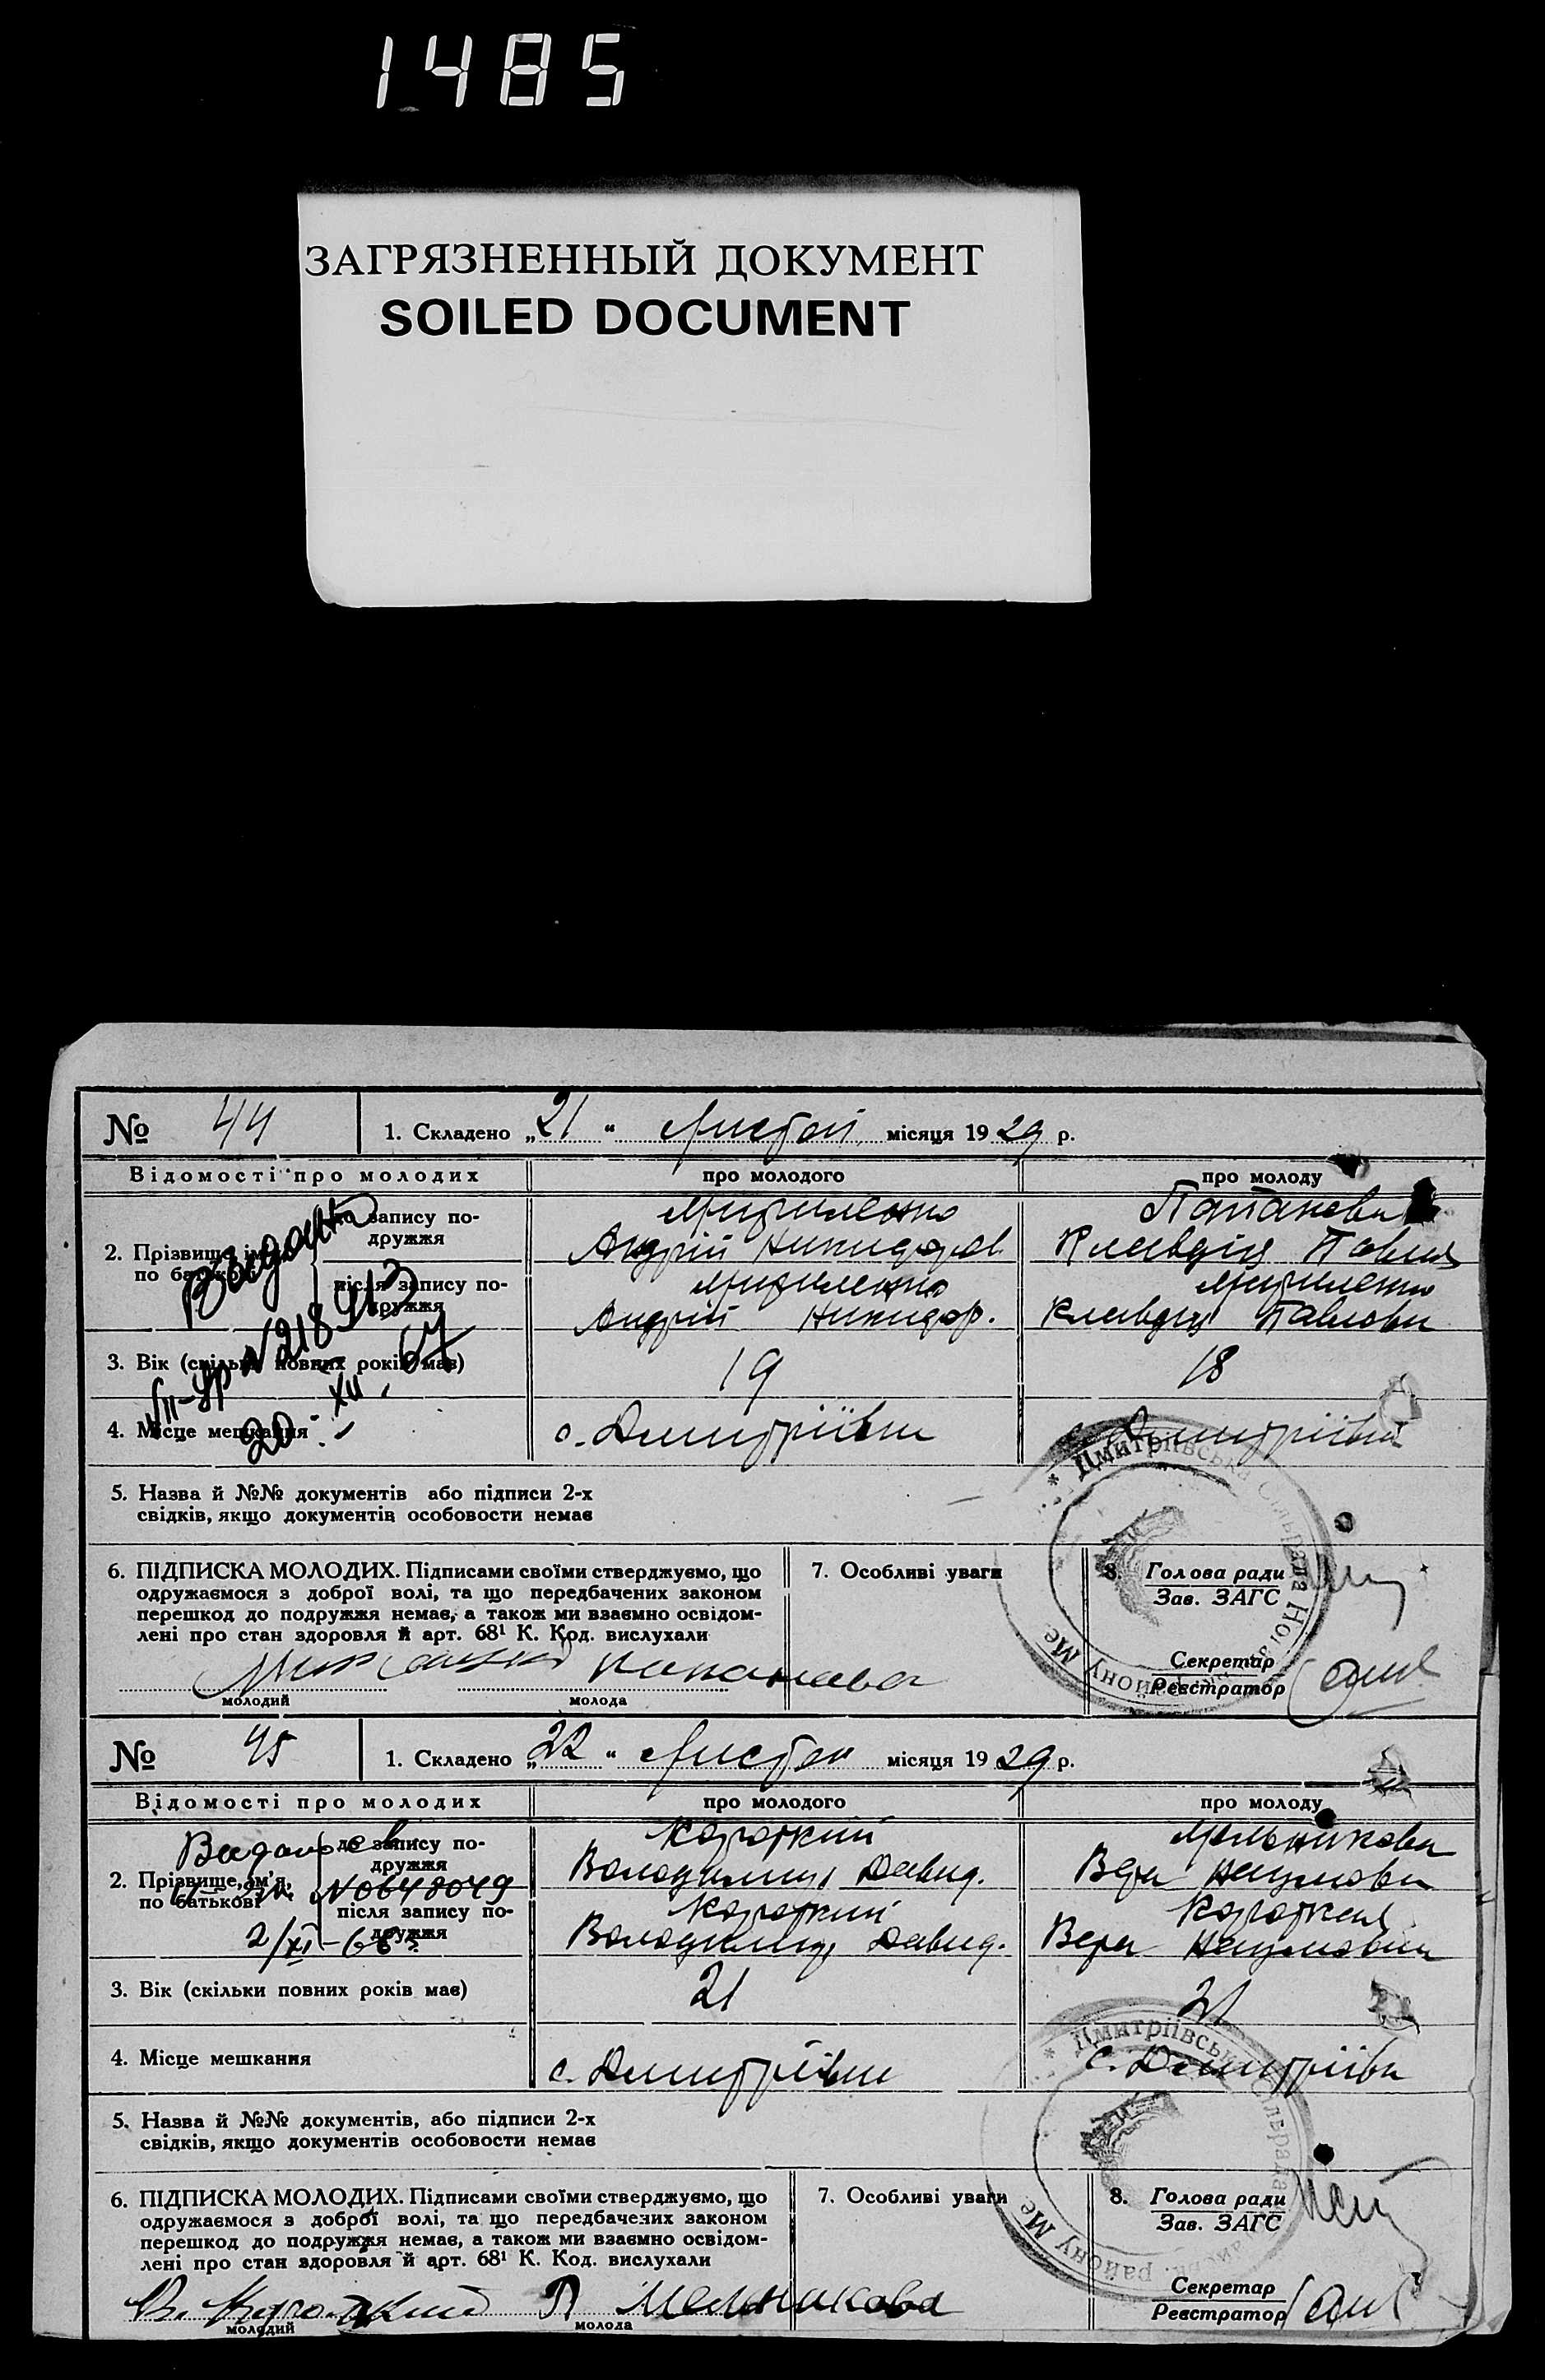 1485
ЗАГРЯЗНЕННЫЙ ДОКУМЕНТ
SOILED DOCUMENT
№ 44 1. Складено „21“ місяця 1929 р.
Відомості про молодих про молодого про молоду
2. Прізвище, ім'я, по батькові
до запису подружжя
Андрій
Клавдія
після запису подружжя
Андрій Никифор.
Клавдія Павлови
N 218
20 XII 67
3. Вік (скільки повних років має) 19 18
4. Місце мешкання с. Дмитріївка с. Дмитріївка
5. Назва й №№ документів або підписи 2-х
свідків, якщо документів особовости немає
6. ПІДПИСКА МОЛОДИХ. Підписами своїми стверджуємо, що
одружаємося з доброї волі, та що передбачених законом
перешкод до подружжя немає, а також ми взаємно освідом-
лені про стан здоровля й арт. 68¹ К. Код. вислухали
молодий молода
7. Особливі уваги
8. Голова ради
Зав. ЗАГС
Секретар
Реєстратор
* Дмитрівська Сільрада
району
№ 45 1. Складено „22“ місяця 1929 р.
Відомості про молодих про молодого про молоду
2. Прізвище, ім'я,
по батькові
до запису по-
дружжя
Короткий
Володимир Давид.
Мельникова
Вера Наумовна
N0648049
після запису по-
дружжя
Короткий
Володимир Давид.
Короткая
Вера Наумовна
2/XI-68
3. Вік (скільки повних років має) 21 21
4. Місце мешкання с. Дмитріївка с. Дмитріївка
5. Назва й №№ документів, або підписи 2-х
свідків, якщо документів особовости немає
6. ПІДПИСКА МОЛОДИХ. Підписами своїми стверджуємо, що
одружаємося з доброї волі, та що передбачених законом
перешкод до подружжя немає, а також ми взаємно освідом-
лені про стан здоровля й арт. 68¹ К. Код. вислухали
В. Короткий В Мельникова
молодий молода
7. Особливі уваги
8. Голова ради
Зав. ЗАГС
Секретар
Реєстратор
* Дмитріївська Сільрада
району